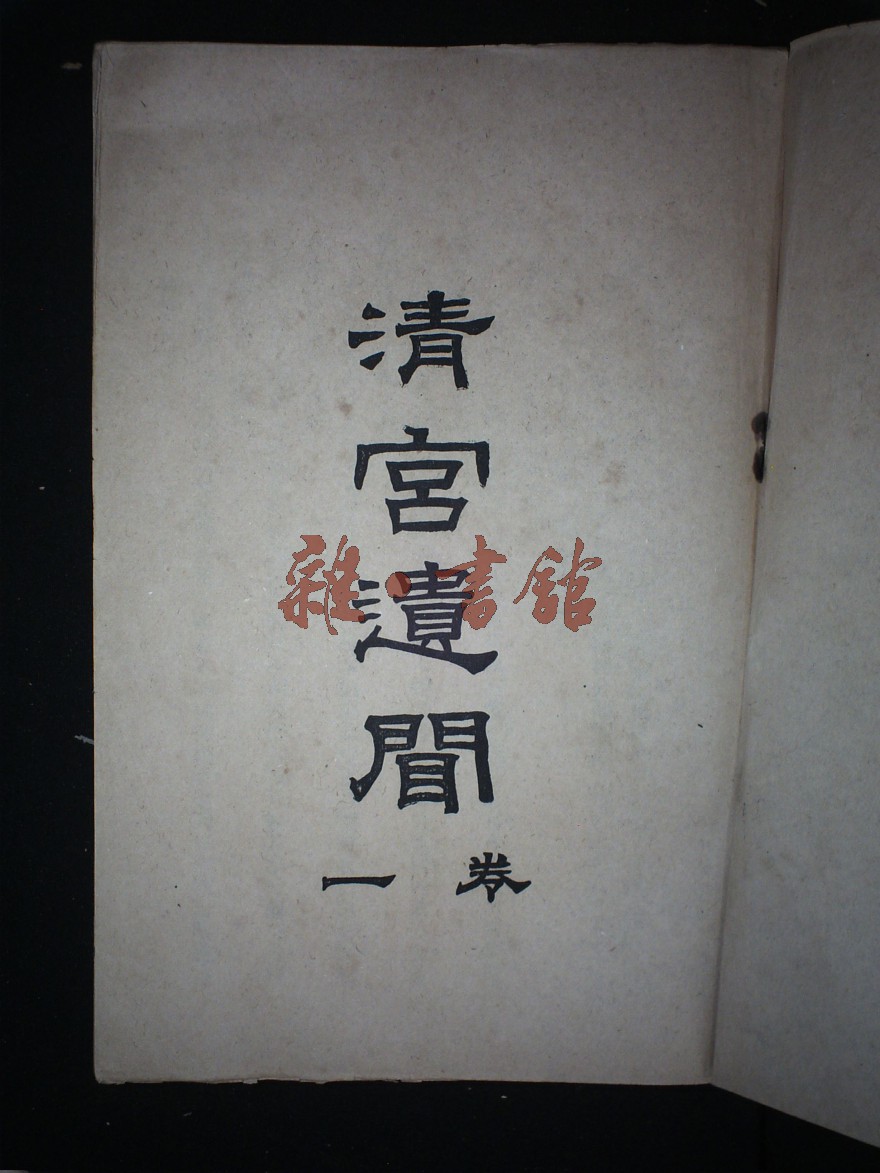 清宮遺聞
卷一
雜·書館